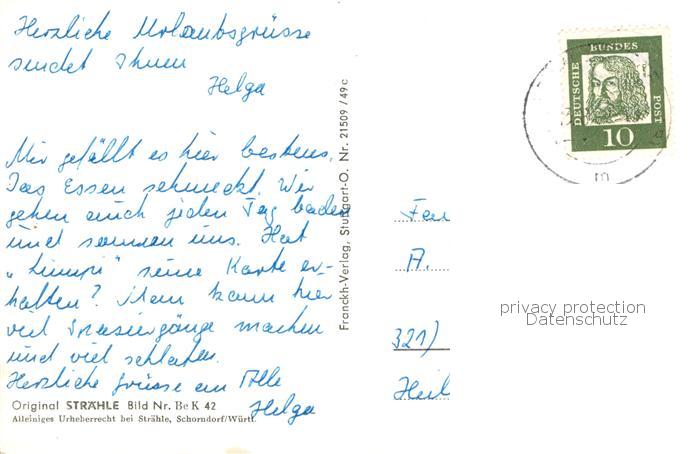 Herzliche Urlaubsgrüsse
sendet Ihnen
Helga
Mir gefällt es hier bestens.
Das Essen schmeckt. Wir
gehen auch jeden Tag baden
und sonnen uns. Hat
„Lumpi" seine Karte er-
halten? Man kann hier
viel Spaziergänge machen
und viel schlafen.
Herzliche Grüsse an Alle
Helga
Original STRÄHLE Bild Nr. Be K 42
Alleiniges Urheberrecht bei Strähle, Schorndorf/Württ.
Franckh-Verlag, Stuttgart-O. Nr. 21509/49c
DEUTSCHE BUNDES POST
10
A.
321)
Heil
privacy protection
Datenschutz